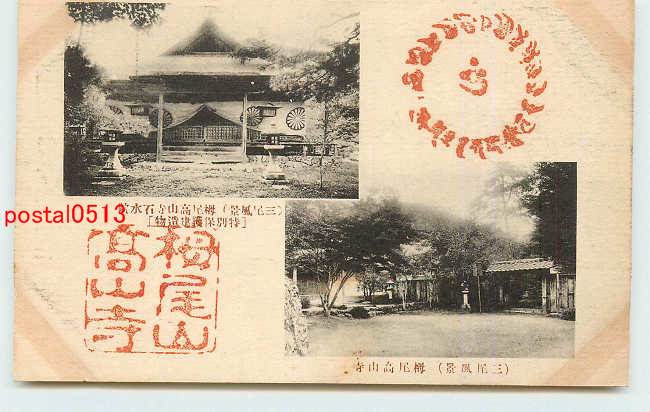 (三尾風景) 栂尾高山寺石水院
[特別保護建造物]
postal0513
栂尾山
高山寺
(三尾風景) 栂尾高山寺